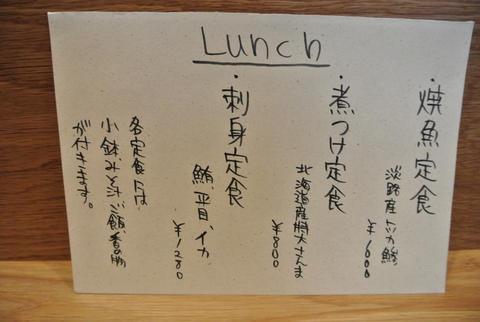 Lunch
・焼魚定食
淡路産トツカ鯵
¥1000
・煮つけ定食
北海道産特大さんま
¥800
・刺身定食
鮪、平目、イカ
¥1280
各定食には
小鉢、みそ汁、ご飯、香の物
が付きます。